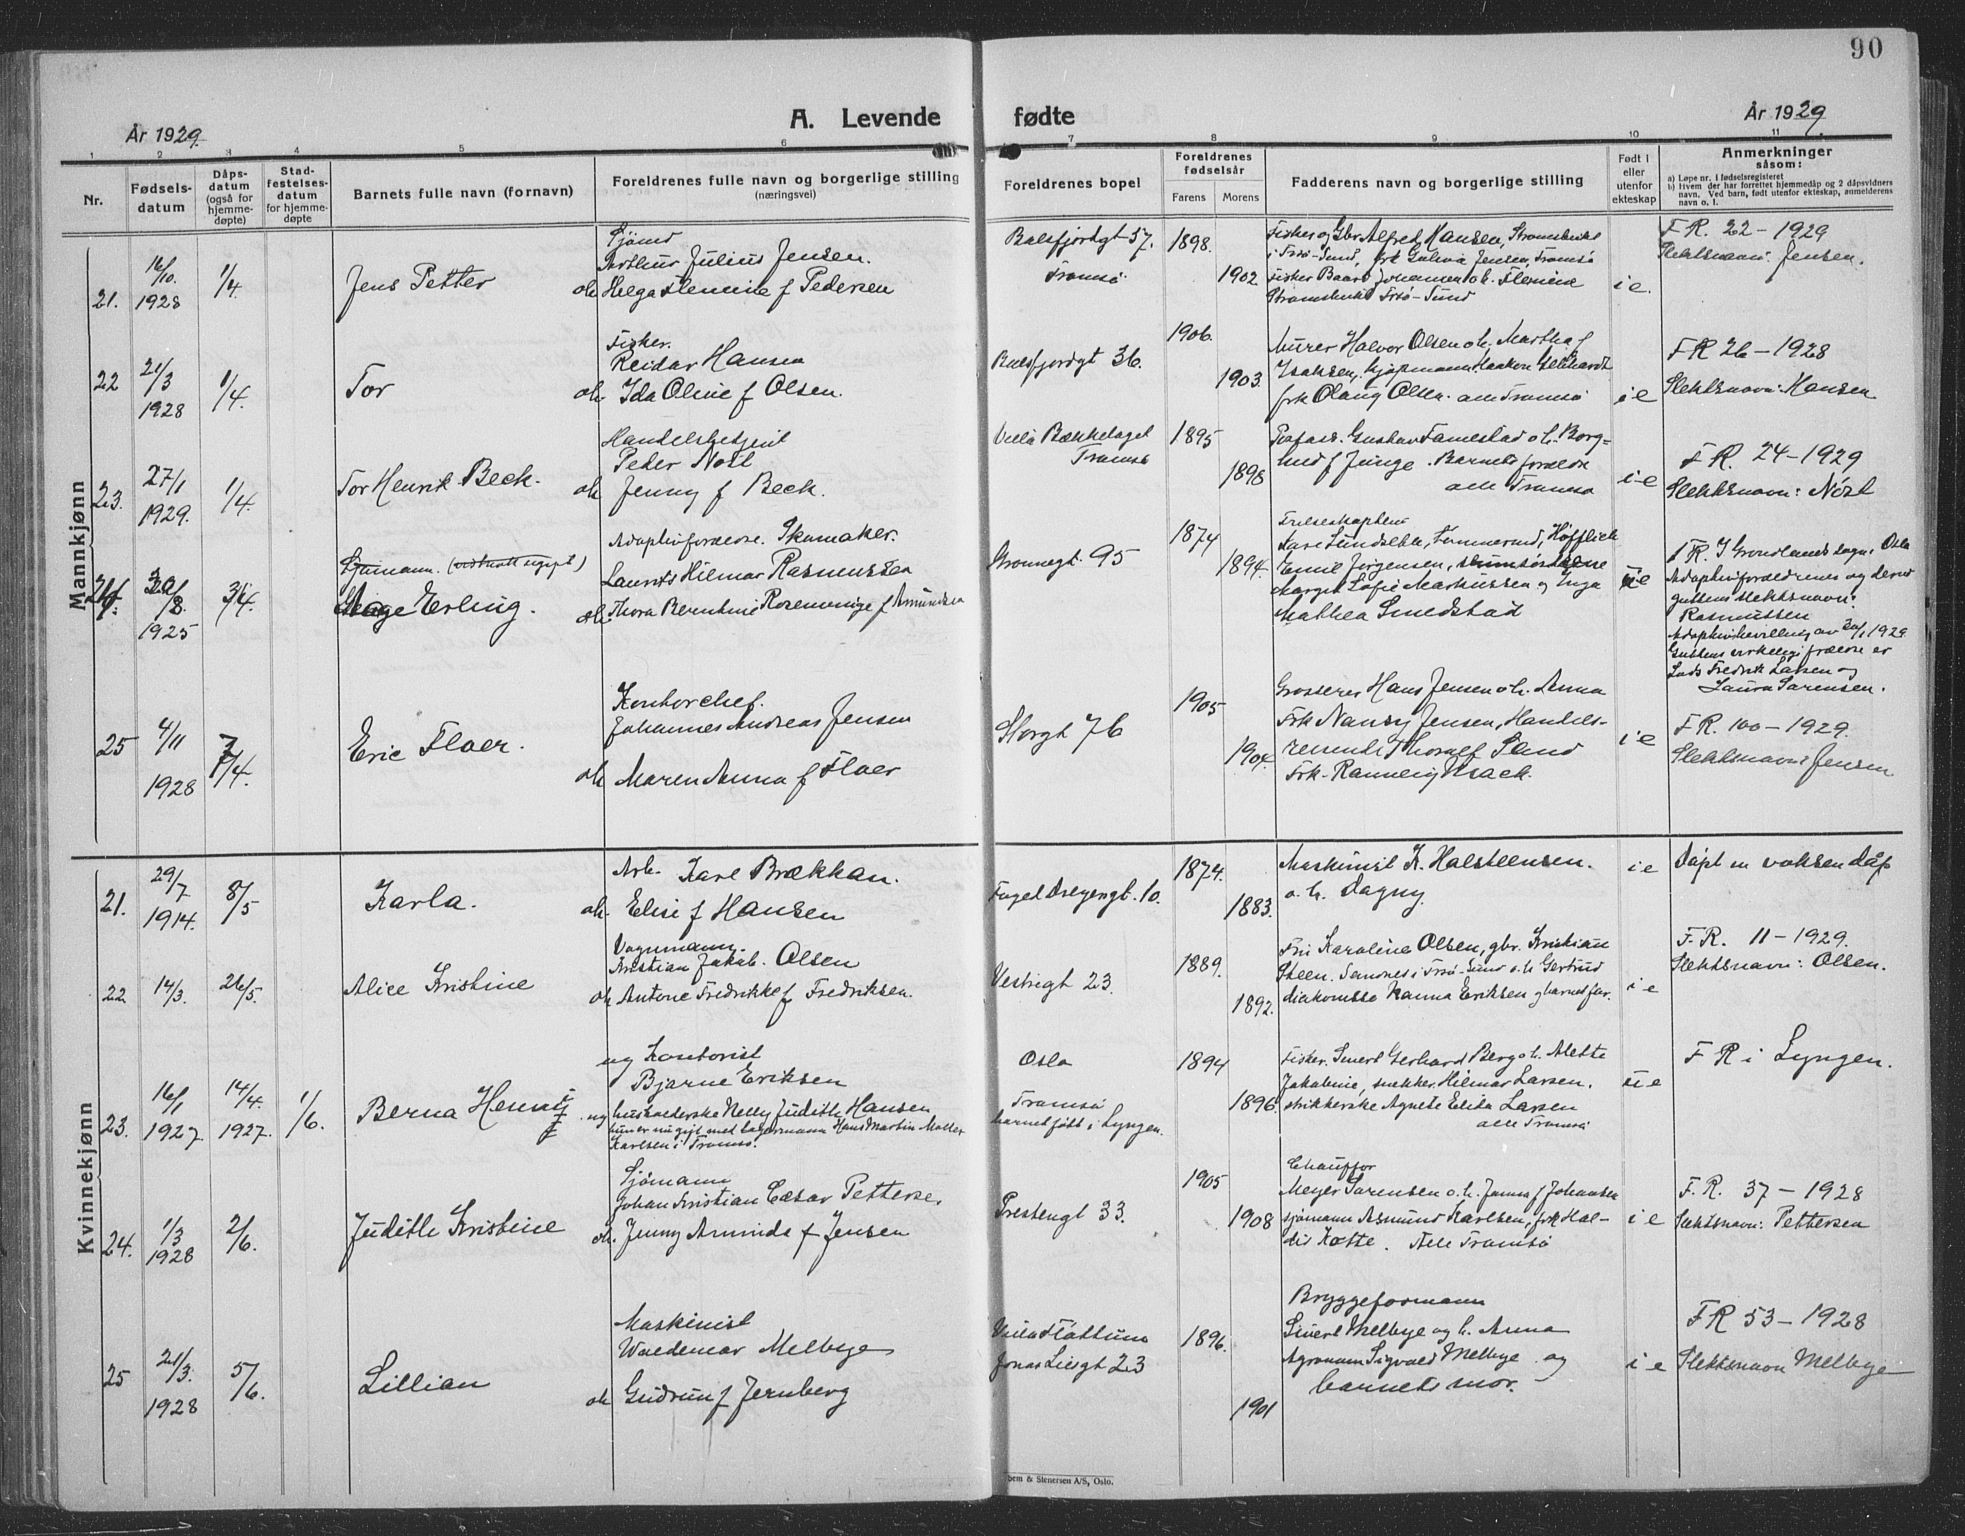 90
År 1929.
A. Levende fødte
År 1929.
1 2 3 4 5 6 7 8 9 10 11
Nr.
Fødsels-
datum
Dåps-
datum
(også for
hjemme-
døpte)
Stad-
festelses-
datum
for hjemme-
døpte
Barnets fulle navn (fornavn)
Foreldrenes fulle navn og borgerlige stilling
(næringsvei)
Foreldrenes bopel
Foreldrenes
fødselsår
Farens Morens
Fadderens navn og borgerlige stilling
Født i
eller
utenfor
ekteskap
Anmerkninger
såsom:
a) Løpe nr. i fødselsregisteret
b) Hvem der har forrettet hjemmedåp og 2 dåpsvidners
navn. Ved barn, født utenfor ekteskap, anmelderens
navn o. l.
Mannkjønn
21.
16/10.
1928
1/4
Jens Petter
Sjømd
Arthur Julius Jensen.
oh Helga f Pedersen
Balsfjordgt 57.
Tromsø
1898.
1902
Fisker og Gbr Alfred Hansen, Strømsbukt
i Trsø-Sund, frk Jensen, Tromsø
Fisker Baard Johansen o h.
Strømsbukt Trsø-Sund
i e.
F R. 22 - 1929
Slektsnavn: Jensen.
22
21/3
1928
1/4.
Tor
Fisker.
Reidar Hansen
oh Ida Oline f Olsen.
Balsfjordgt 36.
1906.
1903.
Murer Halvor Olsen o h. Martha f
Isaksen, kjøpmann Haakon Gebhardt
frk Olaug Olsen. alle Tromsø
i e
F R 26 - 1928
Slektsnavn: Hansen
23.
27/1
1929.
1/4.
Tor Henrik Beck.
Handelsbetjent
Peder Nøst
oh Jenny f Beck.
Villa Bækkelaget
Tromsø
1895
1898
Gustav Tamestad o h. Borg-
hild f Junge. Barnets foreldre
alle Tromsø
i e
F R. 24 - 1929
Slektsnavn: Nøst
24.
20/8
1925
3/4.
Sjømann. (ugift)
Aage Erling.
Adoptivforeldre. Skomaker.
Laurits Hilmar Rasmussen
oh. Thora Bernhine Rosemunige f Amundsen
Storgt 95
1874
1894.
Frelseskaptein
Kare Lundseter,
Emil Jørgensen,
Margit Sofie Markussen og Inga
Mathea Smedstad
u e
F R. I Grønlands sogn. Oslo
Adoptivforeldrenes og derved
guttens slektsnavn:
Rasmussen
Adoptivbevilling av 20/1 1929
Guttens virkelige foreldre er
Fredrik Larsen og
Laura Sørensen.
25
4/11
1928
7/4.
Eric Floer.
Kontorchef.
Johannes Andreas Jensen
oh Maren Anna f Floer
Storgt 76
1905
1904.
Grosserer Hans Jensen o h. Anna
Frk Nancy Jensen, Handels-
reisende Thoralf Sand
Frk. Rannveig Isack.
i e
F R. 100 - 1929.
Slektsnavn: Jensen
Kvinnekjønn
21.
29/7
1914.
8/5
Karla.
Arb. Kare Brækkan.
oh. Elise f Hansen
10.
1874.
1883.
Maskinist K. Halsteensen.
o. h. Dagny.
i e
Døpt en voksen dåp
22
14/3.
26/5.
Alice Kristine
Vognmann.
Kristian Jakob. Olsen
oh Antone Fredrikke f Fredriksen.
Vestregt 23.
1889.
1892.
Fru Karoline Olsen, gbr. Kristian
Steen. Sandnes i Trsø-Sund o. h Gertrud
diakonisse Hanna Eriksen og barnets far.
i e
F. R. 11 - 1929.
Slektsnavn: Olsen.
23.
16/1
1927.
14/4.
1927.
1/6.
Berna Henny
ug Kontorist
Bjarne Eriksen
ug husholderske Nelly Judith Hansen
hun er nu gift med lagermann Hans Martin Møller
Karlsen i Tromsø.
Oslo
Tromsø
barnet født i Lyngen.
1894
1896.
Fisker. Sivert Gerhard Berg o h. Alette
Jakobine, snekker. Hilmar Larsen.
strikkerske Agnete Elida Larsen
alle Tromsø
u e
F R i Lyngen.
24.
1/3
1928
2/6.
Judith Kristine
Sjømann
Johan Kristian Cæsar Petterse.
oh. Jenny Arminda f Jensen
Prestengt 33.
1905
1908
Chauffør
Meyer Sørensen o. h. Janna f Johansen
sjømann Asmund Karlsen, frk Hal-
dis Kotte. Alle Tromsø
i e
F. R. 37 - 1928
Slektsnavn: Pettersen
25
21/3.
1928
5/6.
Lillian
Maskinist
Waldemar Melbye
oh Gudrun f Jernberg
Villa Flattum
Jonas Liesgt 23
1896.
1901
Bryggeformann
Sivert Melbye og h. Anna
Agronom Sigvald Melbye og
barnets mor.
i e
F R 53 - 1928
Slektsnavn Melbye
& Stenersen A/S, Oslo.